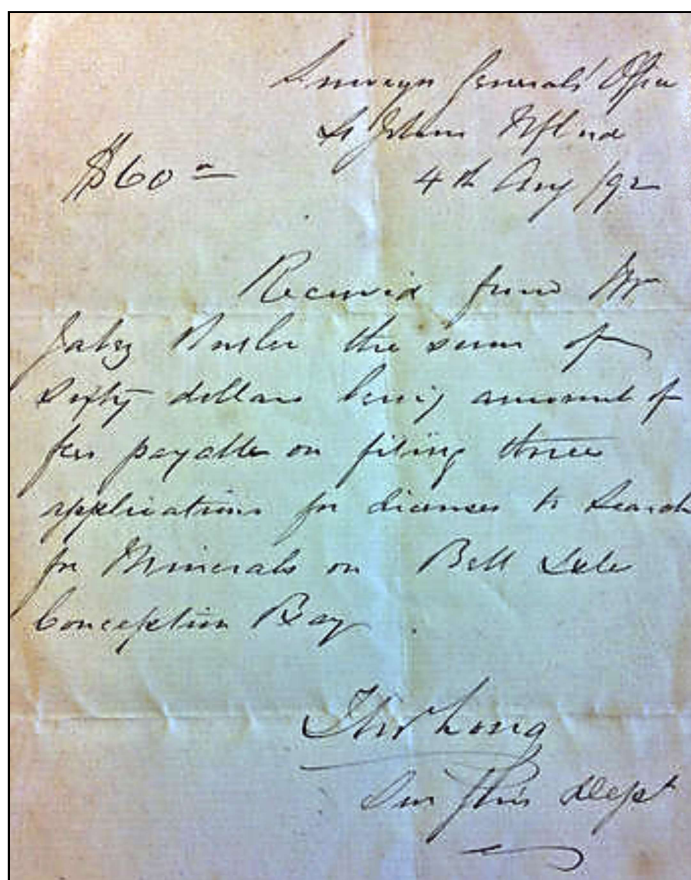 Surveyor Generals' Office
St Johns Nfland
$60 00 4th Aug /92
Received from Mr
Jabez Butler the sum of
Sixty dollars being amount of
fees payable on filing three
applications for licenses to Search
for Minerals on Bell Isle
Conception Bay.
Long
Sur Dept